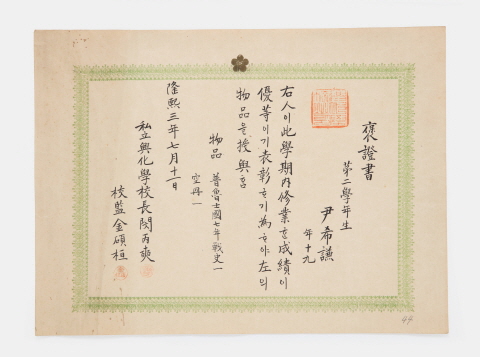 褒證書
第二學年生
尹希謙
年十九
右人이此學期內修業ᄒᆞᆫ成績이
優等이기表彰ᄒᆞ기爲ᄒᆞ야左의
物品을授與홈
物品 普魯士國七年戰史一
空冊一
隆熙三年七月十一日
私立興化學校長閔丙奭
校監金碩桓
44